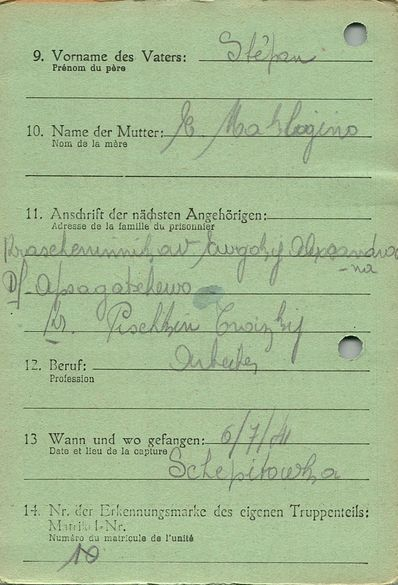 9. Vorname des Vaters: Stépan
Prénom du père
10. Name der Mutter: K Maklogino
Nom de la mère
11. Anschrift der nächsten Angehörigen:
Adresse de la famille du prisonnier
Df.
Kr. Pischkin Troizkij
12. Beruf: Arbeiter
Profession
13 Wann und wo gefangen: 6/7/41
Date et lieu de la capture
Schepitowka
14. Nr. der Erkennungsmarke des eigenen Truppenteils:
Matrikel-Nr.
Numéro du matricule de l'unité
10